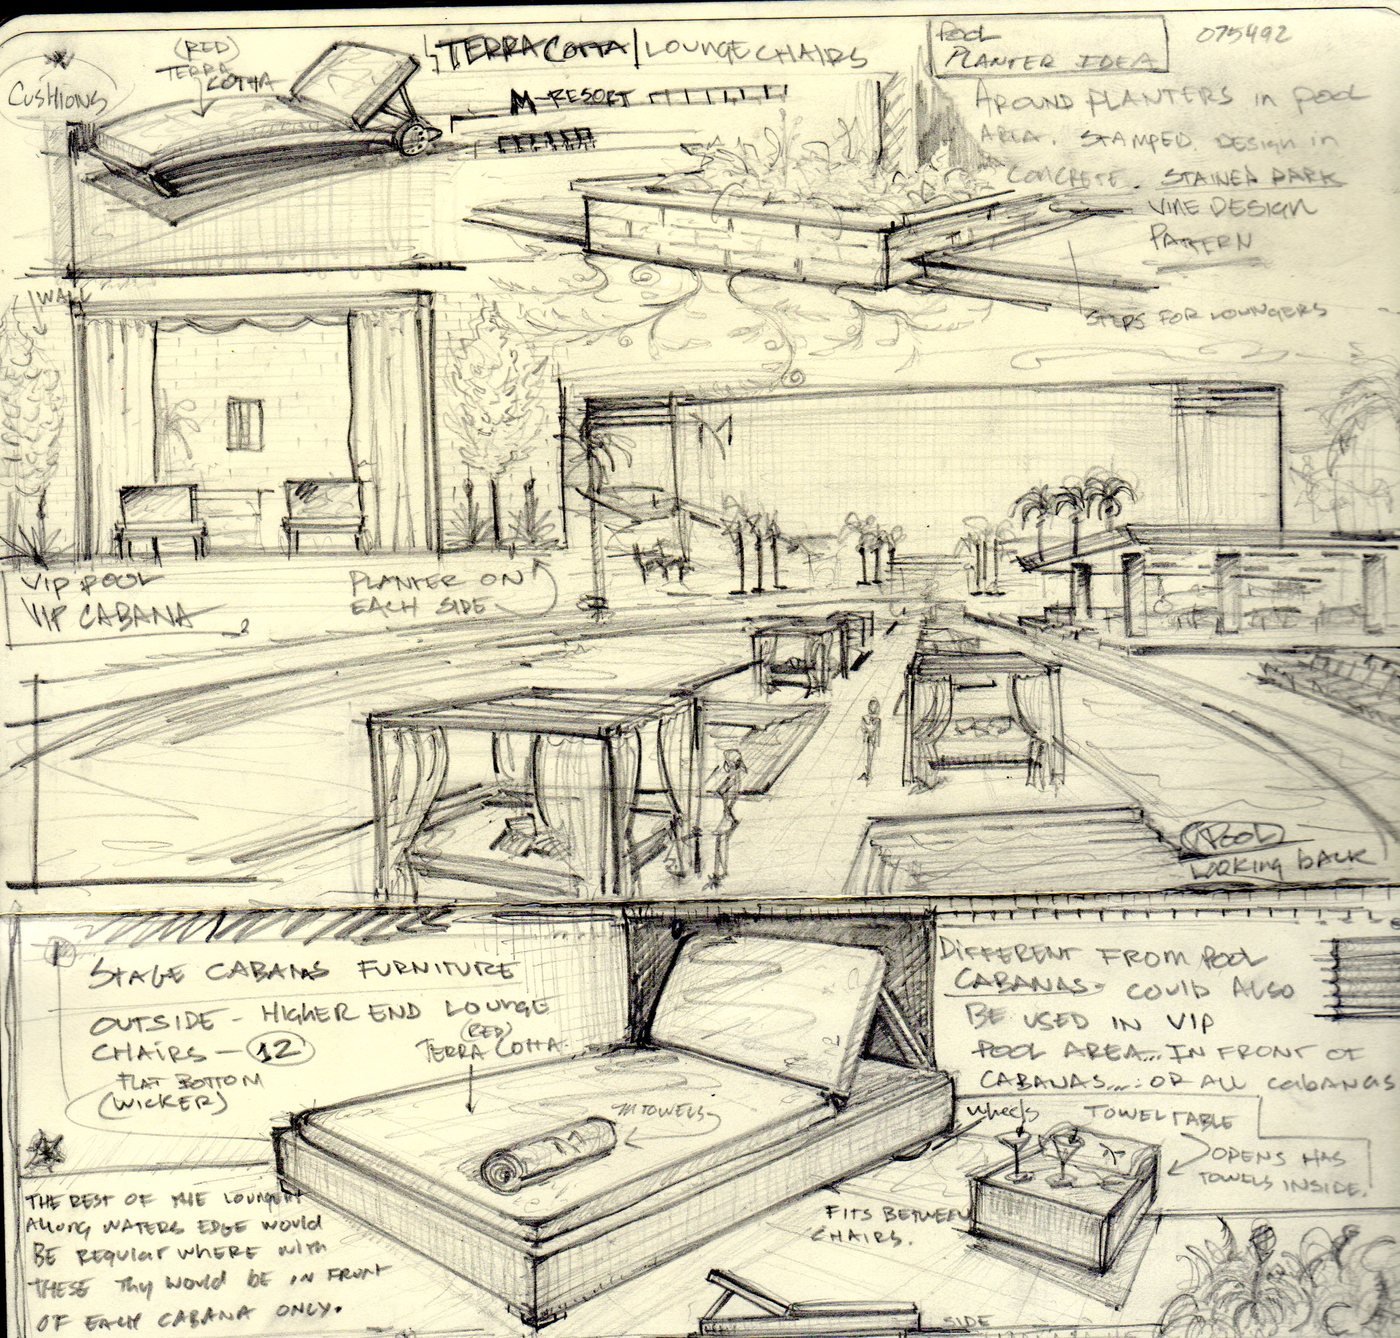 (RED)
TERRA
COTTA
CUSHIONS
TERRA COTTA / LOUNGE CHAIRS
M-RESORT
POOL
PLANTER IDEA
075492
AROUND PLANTERS in POOL
AREA. STAMPED. DESIGN in
CONCRETE. STAINED DARK
VINE DESIGN
PATTERN
STEPS FOR LOUNGERS
WALL
VIP POOL
VIP CABANA
PLANTER ON
EACH SIDE
M
POOL
LOOKING BACK
STAGE CABANAS FURNITURE
OUTSIDE - HIGHER END LOUNGE
CHAIRS - 12
FLAT BOTTOM
(WICKER)
(RED)
TERRA COTTA
M TOWELS
DIFFERENT FROM POOL
CABANAS - COULD ALSO
BE USED IN VIP
POOL AREA... IN FRONT OF
CABANAS....: OR ALL CABANAS
wheels
TOWEL TABLE
OPENS HAS
TOWELS INSIDE.
FITS BETWEEN
CHAIRS.
THE REST OF THE LOUNGERS
ALONG WATERS EDGE WOULD
BE REGULAR WHERE WITH
THESE THEY WOULD BE IN FRONT
OF EACH CABANA ONLY.
SIDE